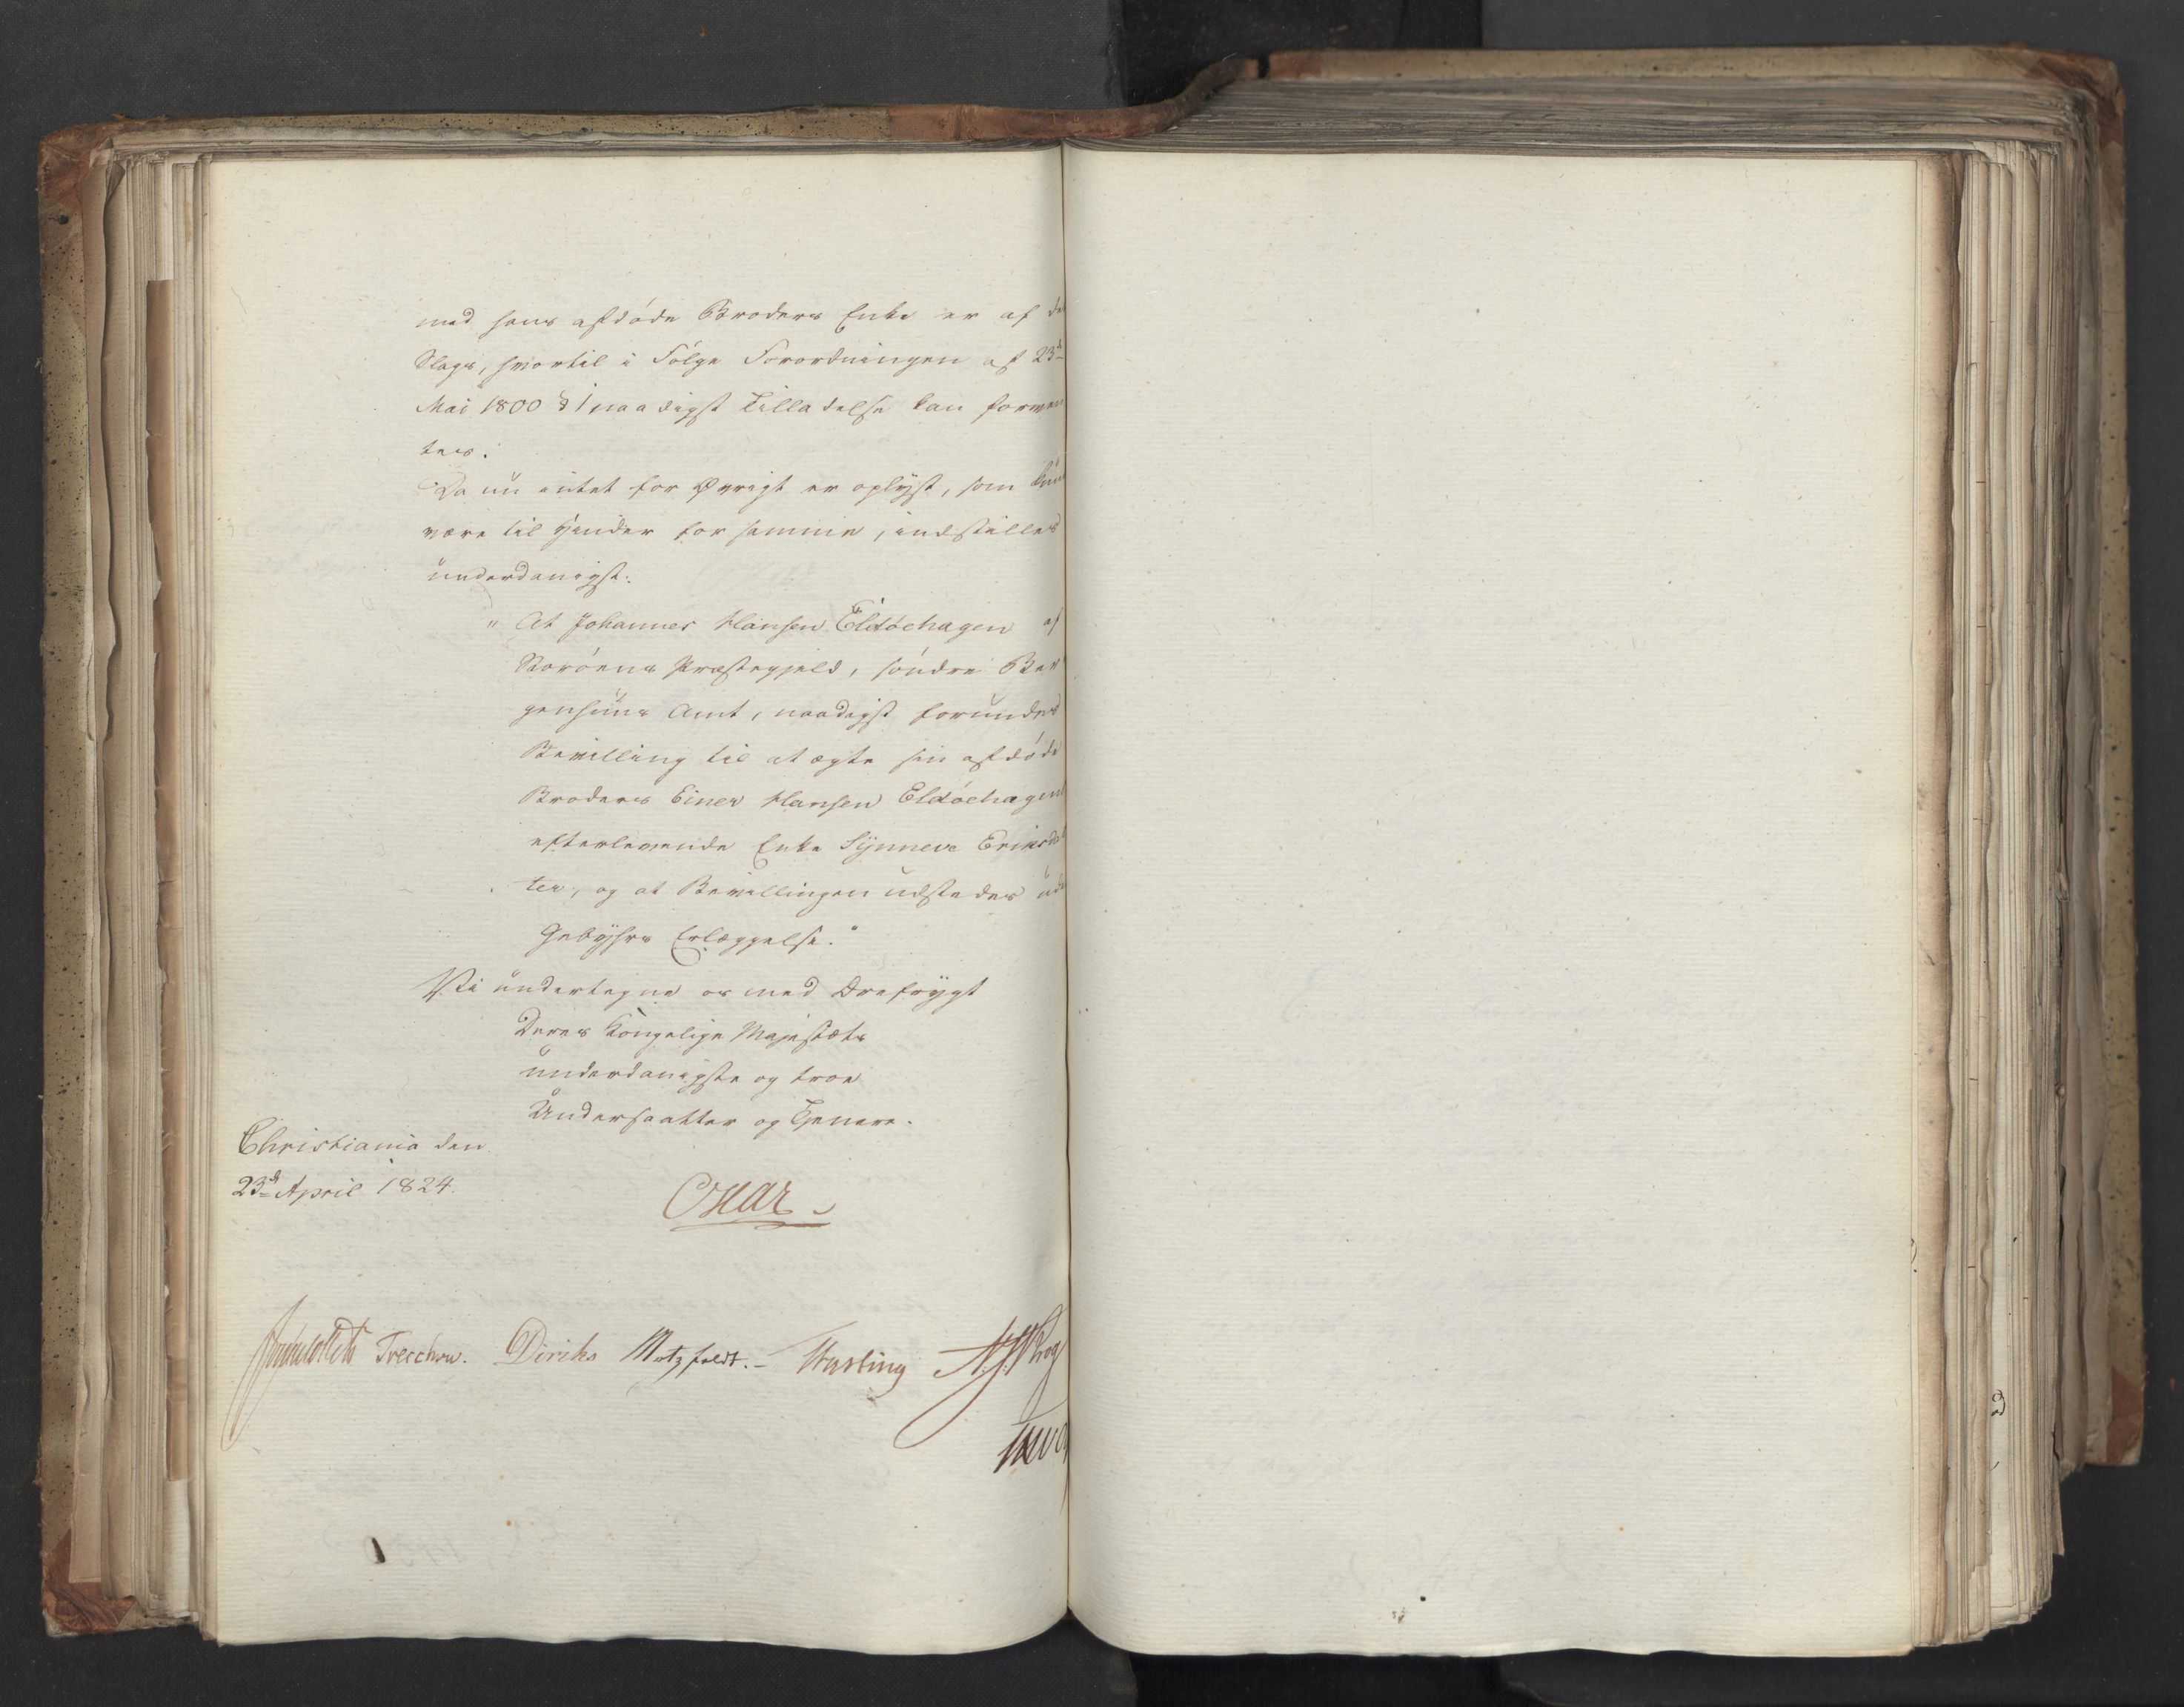 med hans afdøde Broders Enke er af det
Slags, hvortil i Følge Forordningen af 23de
Mai 1800 § 1 naadigst Tilladelse kan forven
tes.
Da nu intet for Øvrigt er oplyst, som kun
være til Hinder for samme, indstilles
underdanigst:
" At Johannes Hansen Eldøehagen af
Storöens Præstegjeld, søndre Ber
genhuus Amt, naadigst forundes
Bevilling til at ægte sin afdøde
Broders Einer Hansen Eldøehagens
efterlevende Enke Synneve Eriksdat
ter, og at Bevillingen udstedes ude
Gebyhrs Erlæggelse."
Vi undertegne os med Ærefrygt
Deres Kongelige Majestæts
underdanigste og troe
Undersaatter og Tjenere.
Christiania den
23de April 1824.
Oscar
Treschow. Diriks Motzfeldt. Fasting